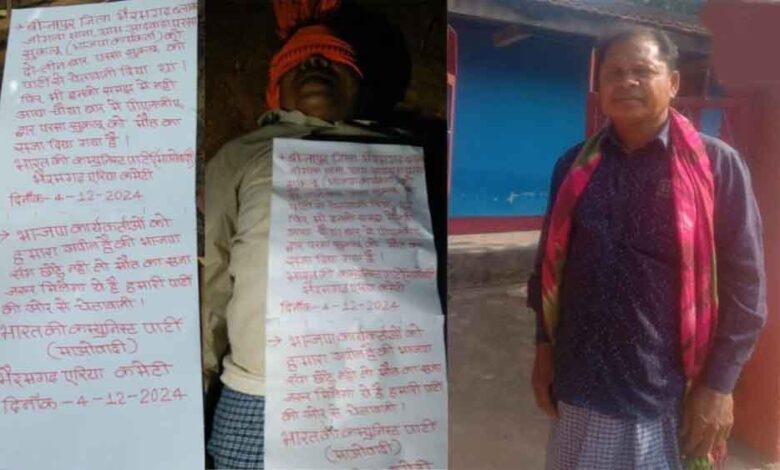 → बीजापुर जिला भैरमगढ़ ब्लाक
जांगला थाना, ग्राम आदवाड़ा परसा
सुकलू (भाजपा कार्यकर्ता) को
दो-तीन बार परसा सुकलू को
पार्टी से चेतावनी दिया था।
फिर भी इनको समझ में नहीं
आया-चौथा बार में पीएलजीए
द्वारा परसा सुकलू को मौत का
सजा दिया गया है।
भारत की कम्युनिस्ट पार्टी (माओवादी)
भैरमगढ़ एरिया कमेटी
दिनाँक-4-12-2024
→ भाजपा कार्यकर्ताओं को
हमारा अपील है की भाजपा
संघ छोड़ नहीं तो मौत का सजा
जरूर मिलेगा ये है हमारी पार्टी
की ओर से चेतावनी।
भारत की कम्युनिस्ट पार्टी
(माओवादी)
भैरमगढ़ एरिया कमेटी
दिनाँक-4-12-2024
→ बीजापुर जिला भैरमगढ़ ब्लाक
जांगला थाना, ग्राम आदवाड़ा परसा
(भाजपा कार्यकर्ता)
दो-तीन बार परसा सुकलू
पार्टी से चेतावनी दिया
फिर भी इनको समझ में नहीं
आया-चौथा बार में
द्वारा परसा सुकलू को मौत का
सजा दिया गया है।
भारत की कम्युनिस्ट पार्टी
भैरमगढ़ एरिया कमेटी
दिनाँक-4-12-2024
→ भाजपा कार्यकर्ताओं को
हमारा अपील है की भाजपा
संघ छोड़ नहीं तो मौत का सजा
जरूर मिलेगा ये है हमारी पार्टी
की ओर से चेतावनी।
भारत की कम्युनिस्ट पार्टी
(माओवादी)
एरिया कमेटी